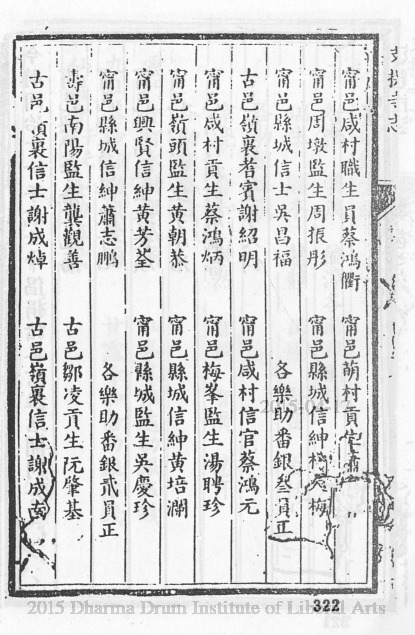 支提寺志
甯邑咸村職生員蔡鴻衢 甯邑萌村貢生
甯邑周墩監生周振彤 甯邑縣城信紳 梅
甯邑縣城信士吳昌福 各樂助番銀叄員正
古邑嶺裏耆賓謝紹明 甯邑咸村信官蔡鴻元
甯邑咸村貢生蔡鴻炳 甯邑梅峯監生湯聘珍
甯邑嶺頭監生黄朝恭 甯邑縣城信紳黄培瀾
甯邑興賢信紳黄芳荃 甯邑縣城監生吳慶珍
甯邑縣城信紳蕭志鵬 各樂助番銀貳員正
壽邑南陽監生龔觀善 古邑鄒凌貢生阮肇基
古邑嶺裏信士謝成焯 古邑嶺裏信士謝成
322
2015 Dharma Drum Institute of Liberal Arts